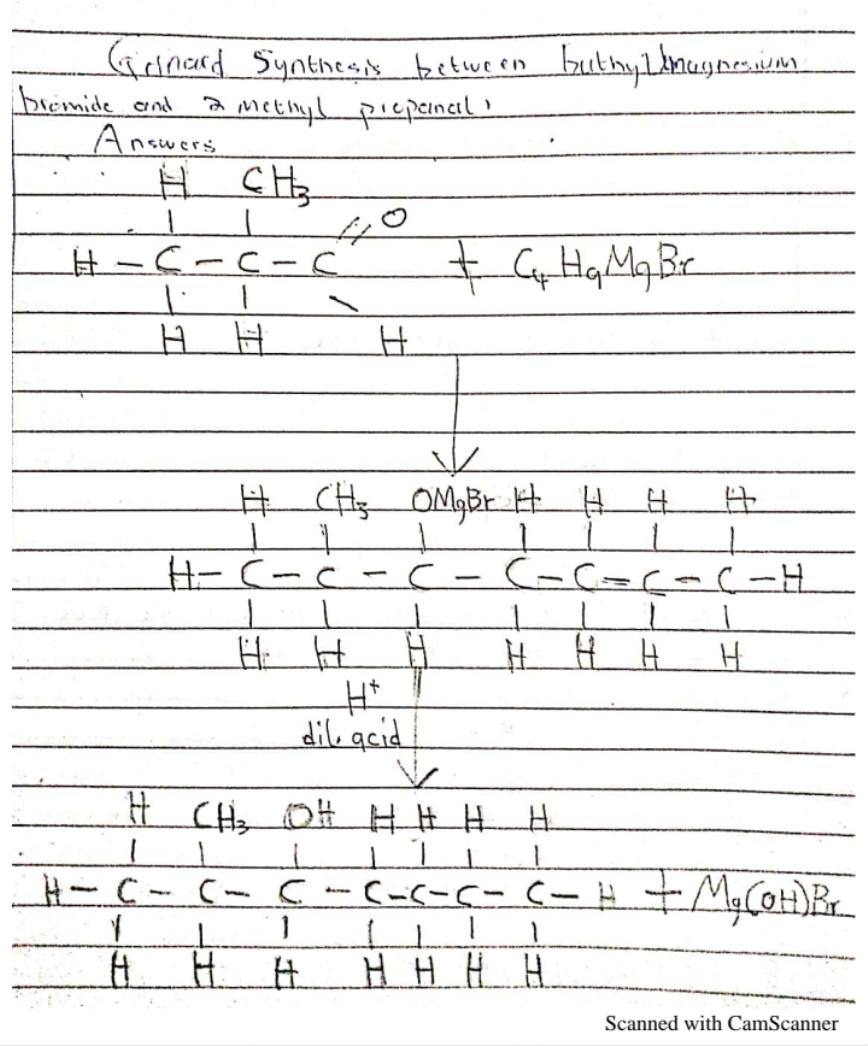 Grignard Synthesis between buthyl magnesium
bromide and 2 methyl propanal.
Answers
H CH₃
| | // O
H - C - C - C + C₄H₉MgBr
| | \
H H H
H CH₃ OMgBr H H H H
| | | | | | |
H - C - C - C - C - C = C - C - H
| | | | | | |
H H H H H H H
H⁺
dil. acid
H CH₃ OH H H H H
| | | | | | |
H - C - C - C - C - C - C - C - H + Mg(OH)Br
| | | | | | |
H H H H H H H
Scanned with CamScanner